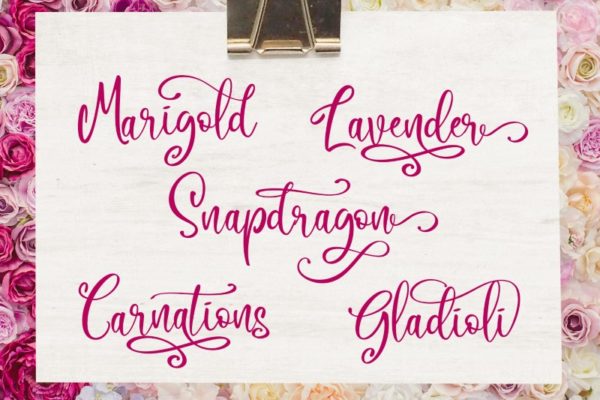 Marigold
Lavender
Snapdragon
Carnations
Gladioli